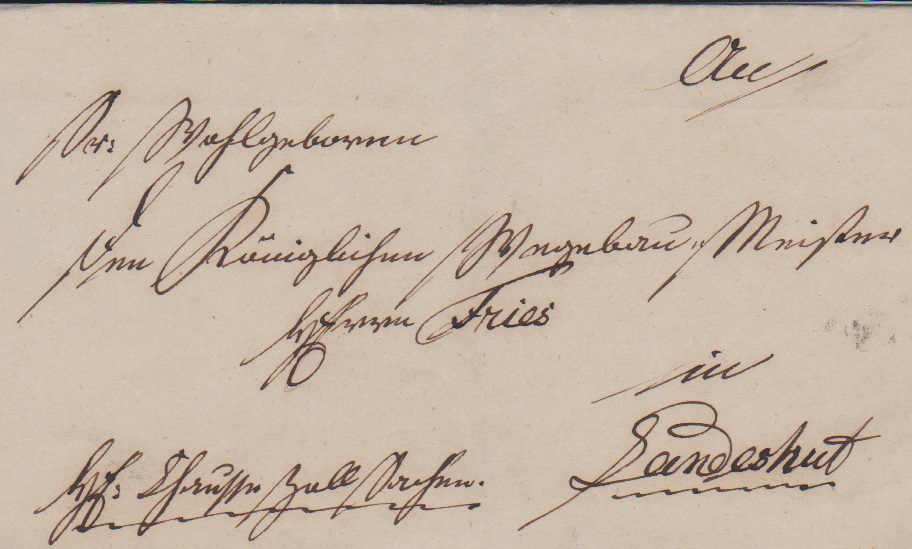 An
Sr: Wohlgeboren
den Königlichen Wegebau-Meister
Herrn Fries
in
Landeshut
Chausse Zoll Sachen.